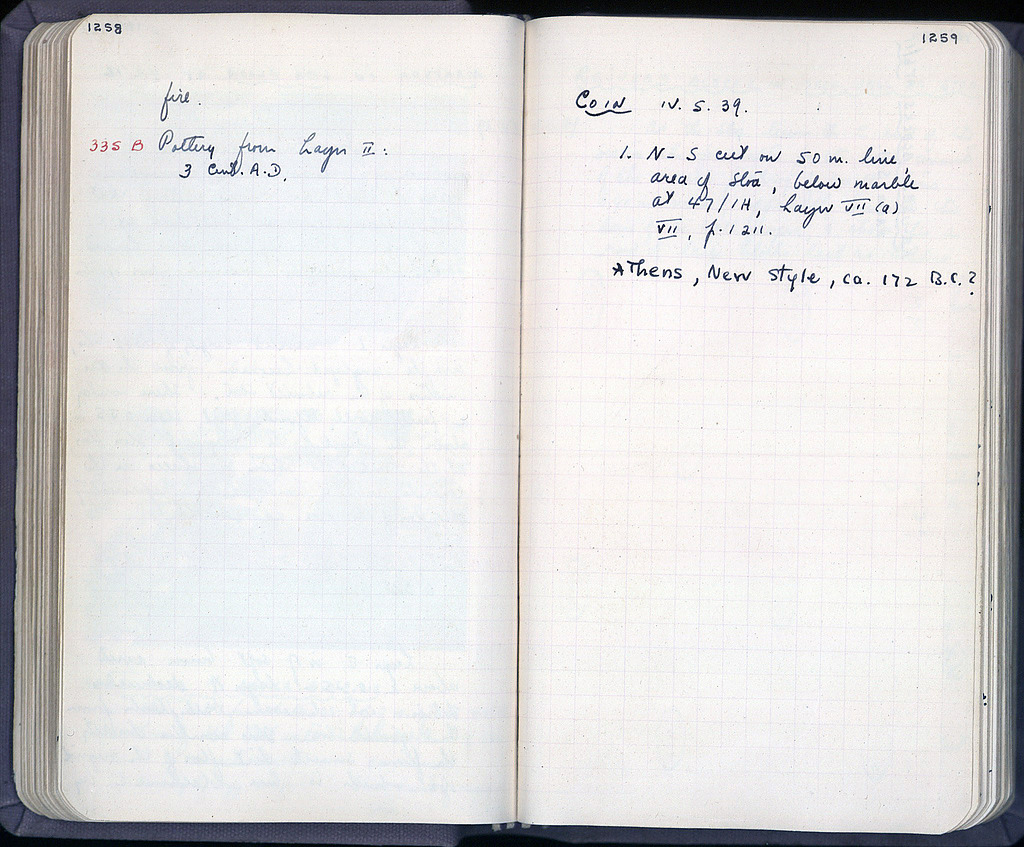 1258
fire.
335 B Pottery from Layer II:
3 Cent. A.D.
1259
COIN IV. 5. 39.
1. N-S cut on 50 m. line,
area of Stoa, below marble
at 47/1H, Layer VII (a)
VII, p. 1211.
Athens, New Style, ca. 172 B.C.?